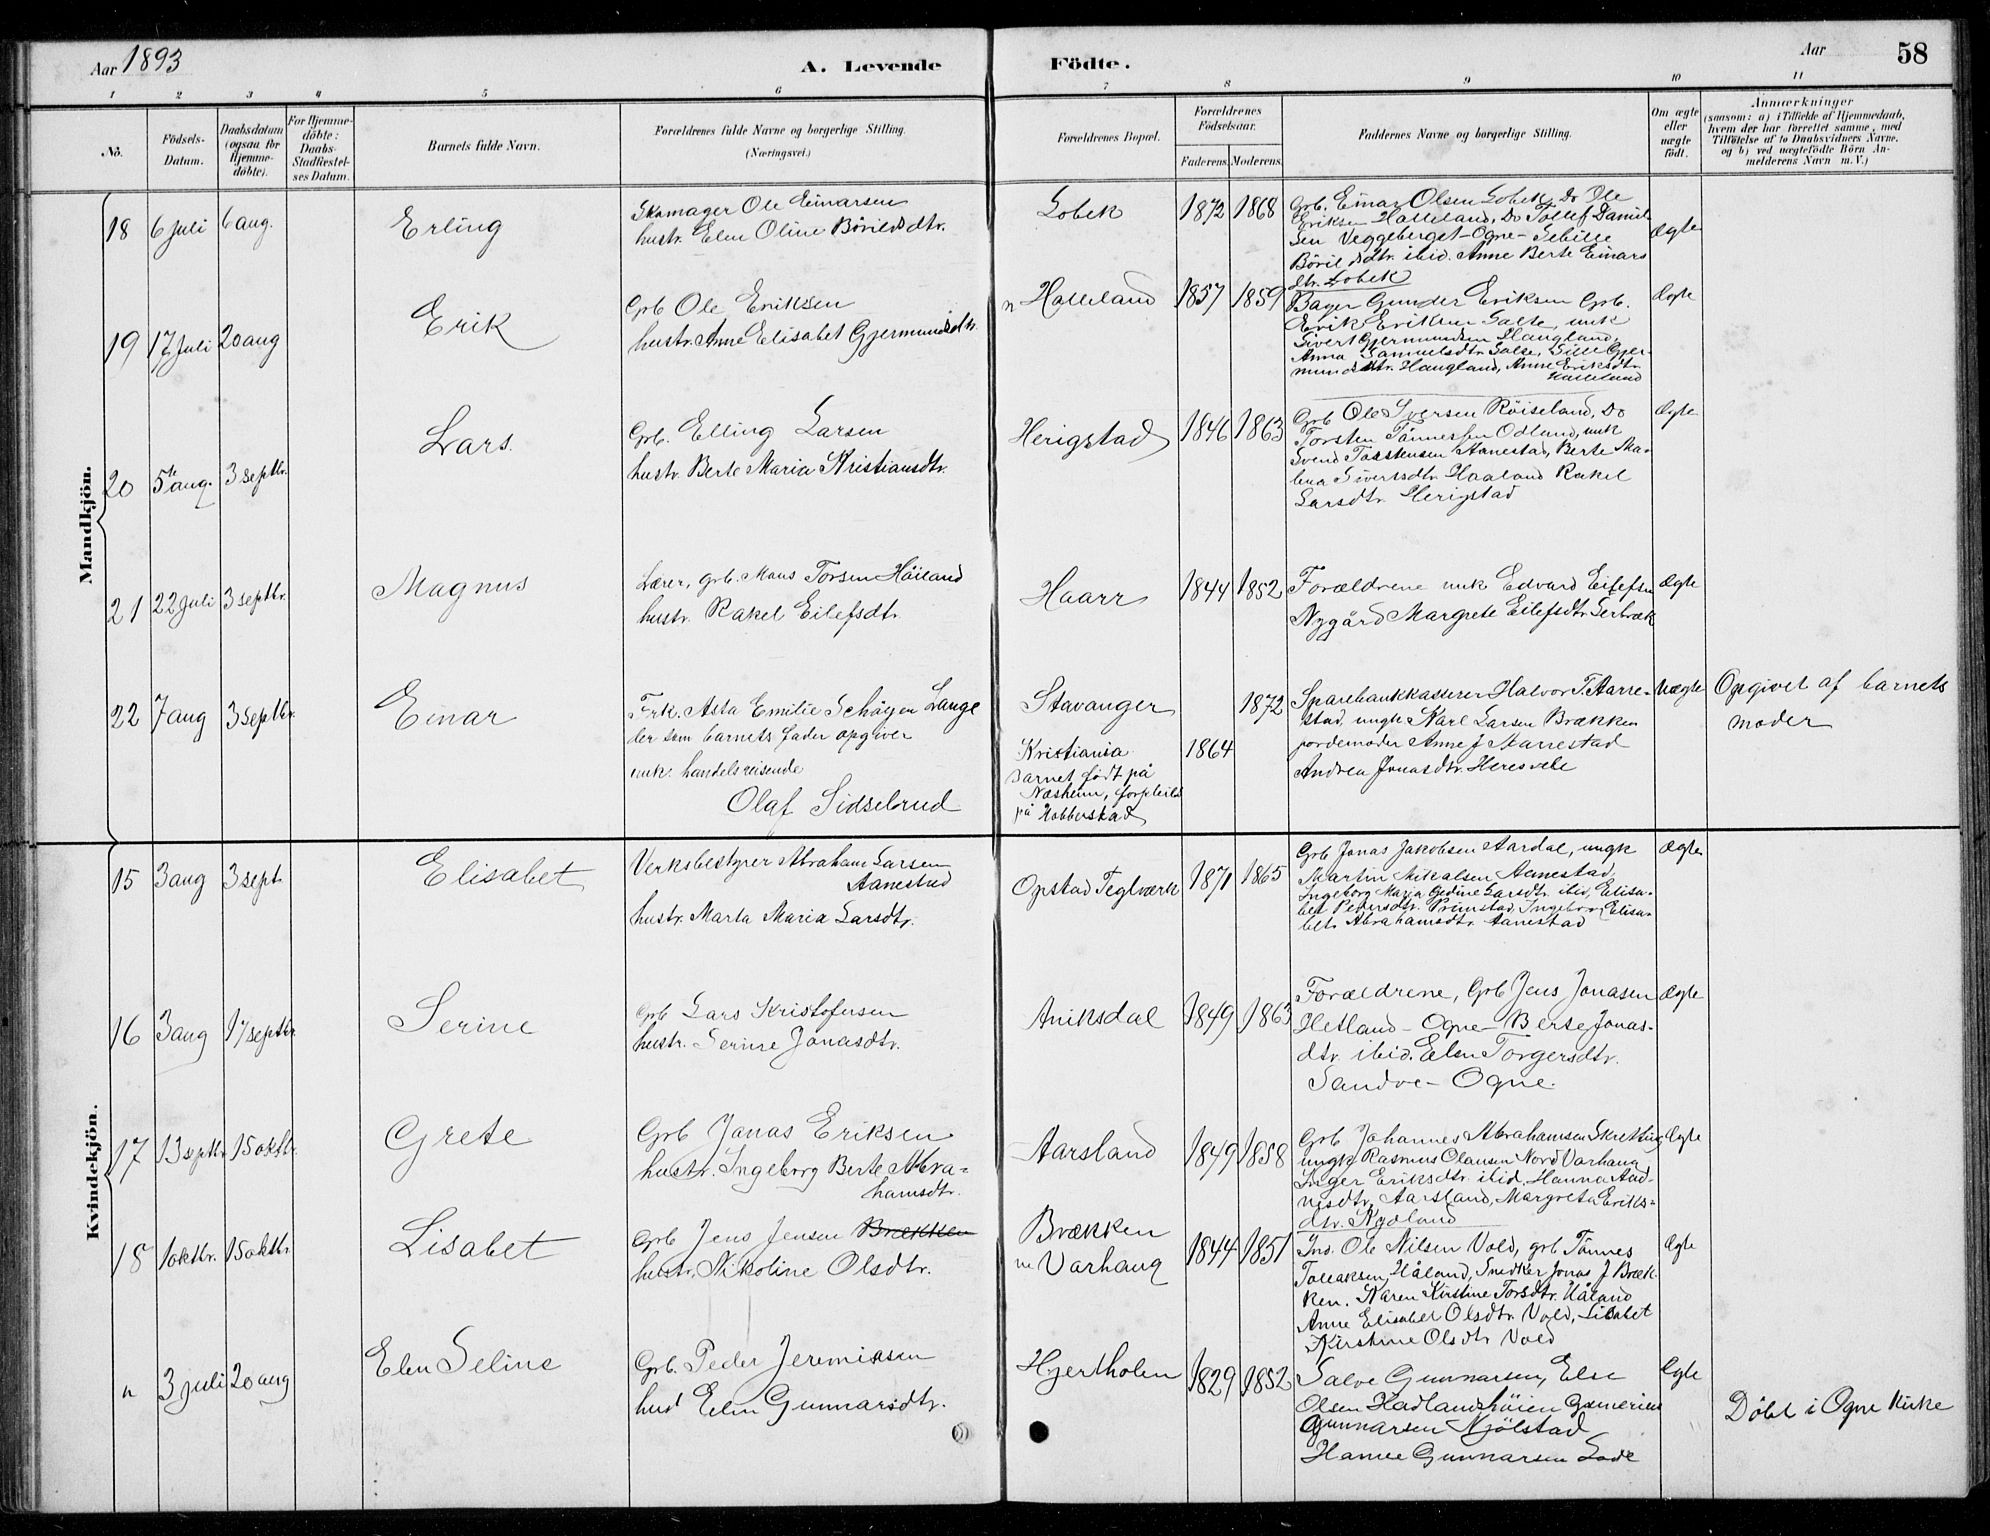 Aar 1893
A. Levende Födte.
Aar
58
1 2 3 4 5 6 7 8 9 10 11
No.
Födsels-Datum.
Daabsdatum (ogsaa for Hjemme-döbte).
For Hjemme-döbte: Daabs-Stadfæstel-ses Datum.
Barnets fulde Navn.
Forældrenes fulde Navne og borgerlige Stilling.
(Næringsvei.)
Forældrenes Bopæl.
Forældrenes Födselsaar.
Faderens. Moderens.
Faddernes Navne og borgerlige Stilling.
Om ægte eller uægte födt.
Anmærkninger
(saasom: a) i Tilfælde af Hjemmedaab, hvem der har forrettet samme, med Tilföielse af to Daabsvidners Navne. og b) ved uægtefödte Börn Anmelderens Navn m. V.)
Mandkjön.
18 6 juli 6 aug. Erling
Skomager Ole Einarsen
hustr. Elen Oline Börildsdtr.
Lobek 1872 1868
Grb. Einar Olsen Lobek, Do Ole
Eriksen Holleland, Do Tollef Daniel-
sen Veggeberget - Ogne - Sebille
Börildsdtr. ibid. Anne Berte Einars
dtr. Lobek
Ægte
19 17 Juli 20 aug Erik
Grb Ole Eriksen
hustr. Anne Elisabet Gjermundsdtr.
n Holleland 1857 1859
Bager Gunder Eriksen Grb.
Erik Eriksen Salte, unk
Sivert Gjermundsen Haugland,
Anna Samuelsdtr. Salte, Sille Gjer-
mundsdtr. Haugland, Anne Eriksdtr.
Holleland
Ægte
20 5te aug. 3 septbr. Lars.
Grb. Elling Larsen
hustr. Berte Maria Kristiansdtr.
Herigstad 1846 1863
Grb Ole Iversen Röiseland, Do
Torsten Tönnessen Odland, unk
Svend Torstensen Aanestad, Berte Ma-
lena Sivertsdtr. Haaland Rakel
Larsdtr. Herigstad
Ægte
21 22 juli 3 septbr. Magnus
Lærer, grb. Mons Torsen Höiland
hustr. Rakel Eilefsdtr.
Haarr 1844 1852
Forældrene unk Edvard Eilefsen
Nygård Margrete Eilefsdtr. Serbræk
Ægte
22 7 aug 3 septbr. Einar
Frk. Asta Emilie Schöyen Lange
der som barnets fader opgiver
unk. handelsreisende
Olaf Sidselrud
Stavanger 1872
Kristiania 1864
Barnet født på
Næsheim, forpleiet
på Hobberstad
Sparebankkasserer Halvor T. Aarre-
stad, ungk Karl Larsen Brækken
jordemoder Anne J Aanestad
Andrea Jonasdtr. Heresvele
Uægte
Opgivet af barnets
moder
Kvindekjön.
15 3 aug 3 sept Elisabet
Verksbestyrer Abraham Larsen
Aanestad
hustr. Marta Maria Larsdtr.
Opstad Teglværk 1871 1865
Grb Jonas Jakobsen Aardal, ungk
Martin Mikalsen Aanestad,
Ingeborg Marja Gedine Larsdtr. ibid, Elisa-
bet Pedersdtr. Primstad, Ingeborg Elisa-
bet Abrahamsdtr. Aanestad
Ægte
16 3 aug 17 septbr. Serine
Grb Lars Kristofersen
hustr. Serine Jonasdtr.
Aniksdal 1849 1863
Forældrene, Grb Jens Jonasen
Hetland - Ogne - Berte Jonas-
dtr. ibid. Elen Torgersdtr.
Sandve - Ogne.
Ægte
17 13 septbr. 15 oktbr. Grete
Grb Jonas Eriksen
hustr. Ingeborg Berte Abra-
hamsdtr.
Aarsland 1849 1858
Grb Johannes Abrahamsen Skretting
ungk Rasmus Olausen Nord Varhaug
Inger Eriksdtr. ibid, Hanna Aad-
nesdtr. Aarsland, Margreta Eriks-
dtr. Nydland
Ægte
18 1 oktbr. 15 oktbr. Lisabet
Grb Jens Jensen Brækken
hustr. Nikoline Olsdtr.
Brækken
Varhaug 1844 1851
Ole Nilsen Vold, grb Tönnes
Tollaksen Håland, Snedker Jonas J Bræk-
ken. Karen Kirstine Torsdtr. Håland
Anne Elisabet Olsdtr. Vold, Lisabet
Kirstine Olsdtr Vold
Ægte
n 3 juli 20 aug Elen Seline
Grb. Peder Jeremiasen
hust Elen Gunnarsdtr.
Hjertholen 1829 1852
Salve Gunnarsen, Else
Olsen Hadlandshöien
Gunnarsen Njölstad
Gunnarsen Lode
Ægte
Döbt i Ogne Kirke